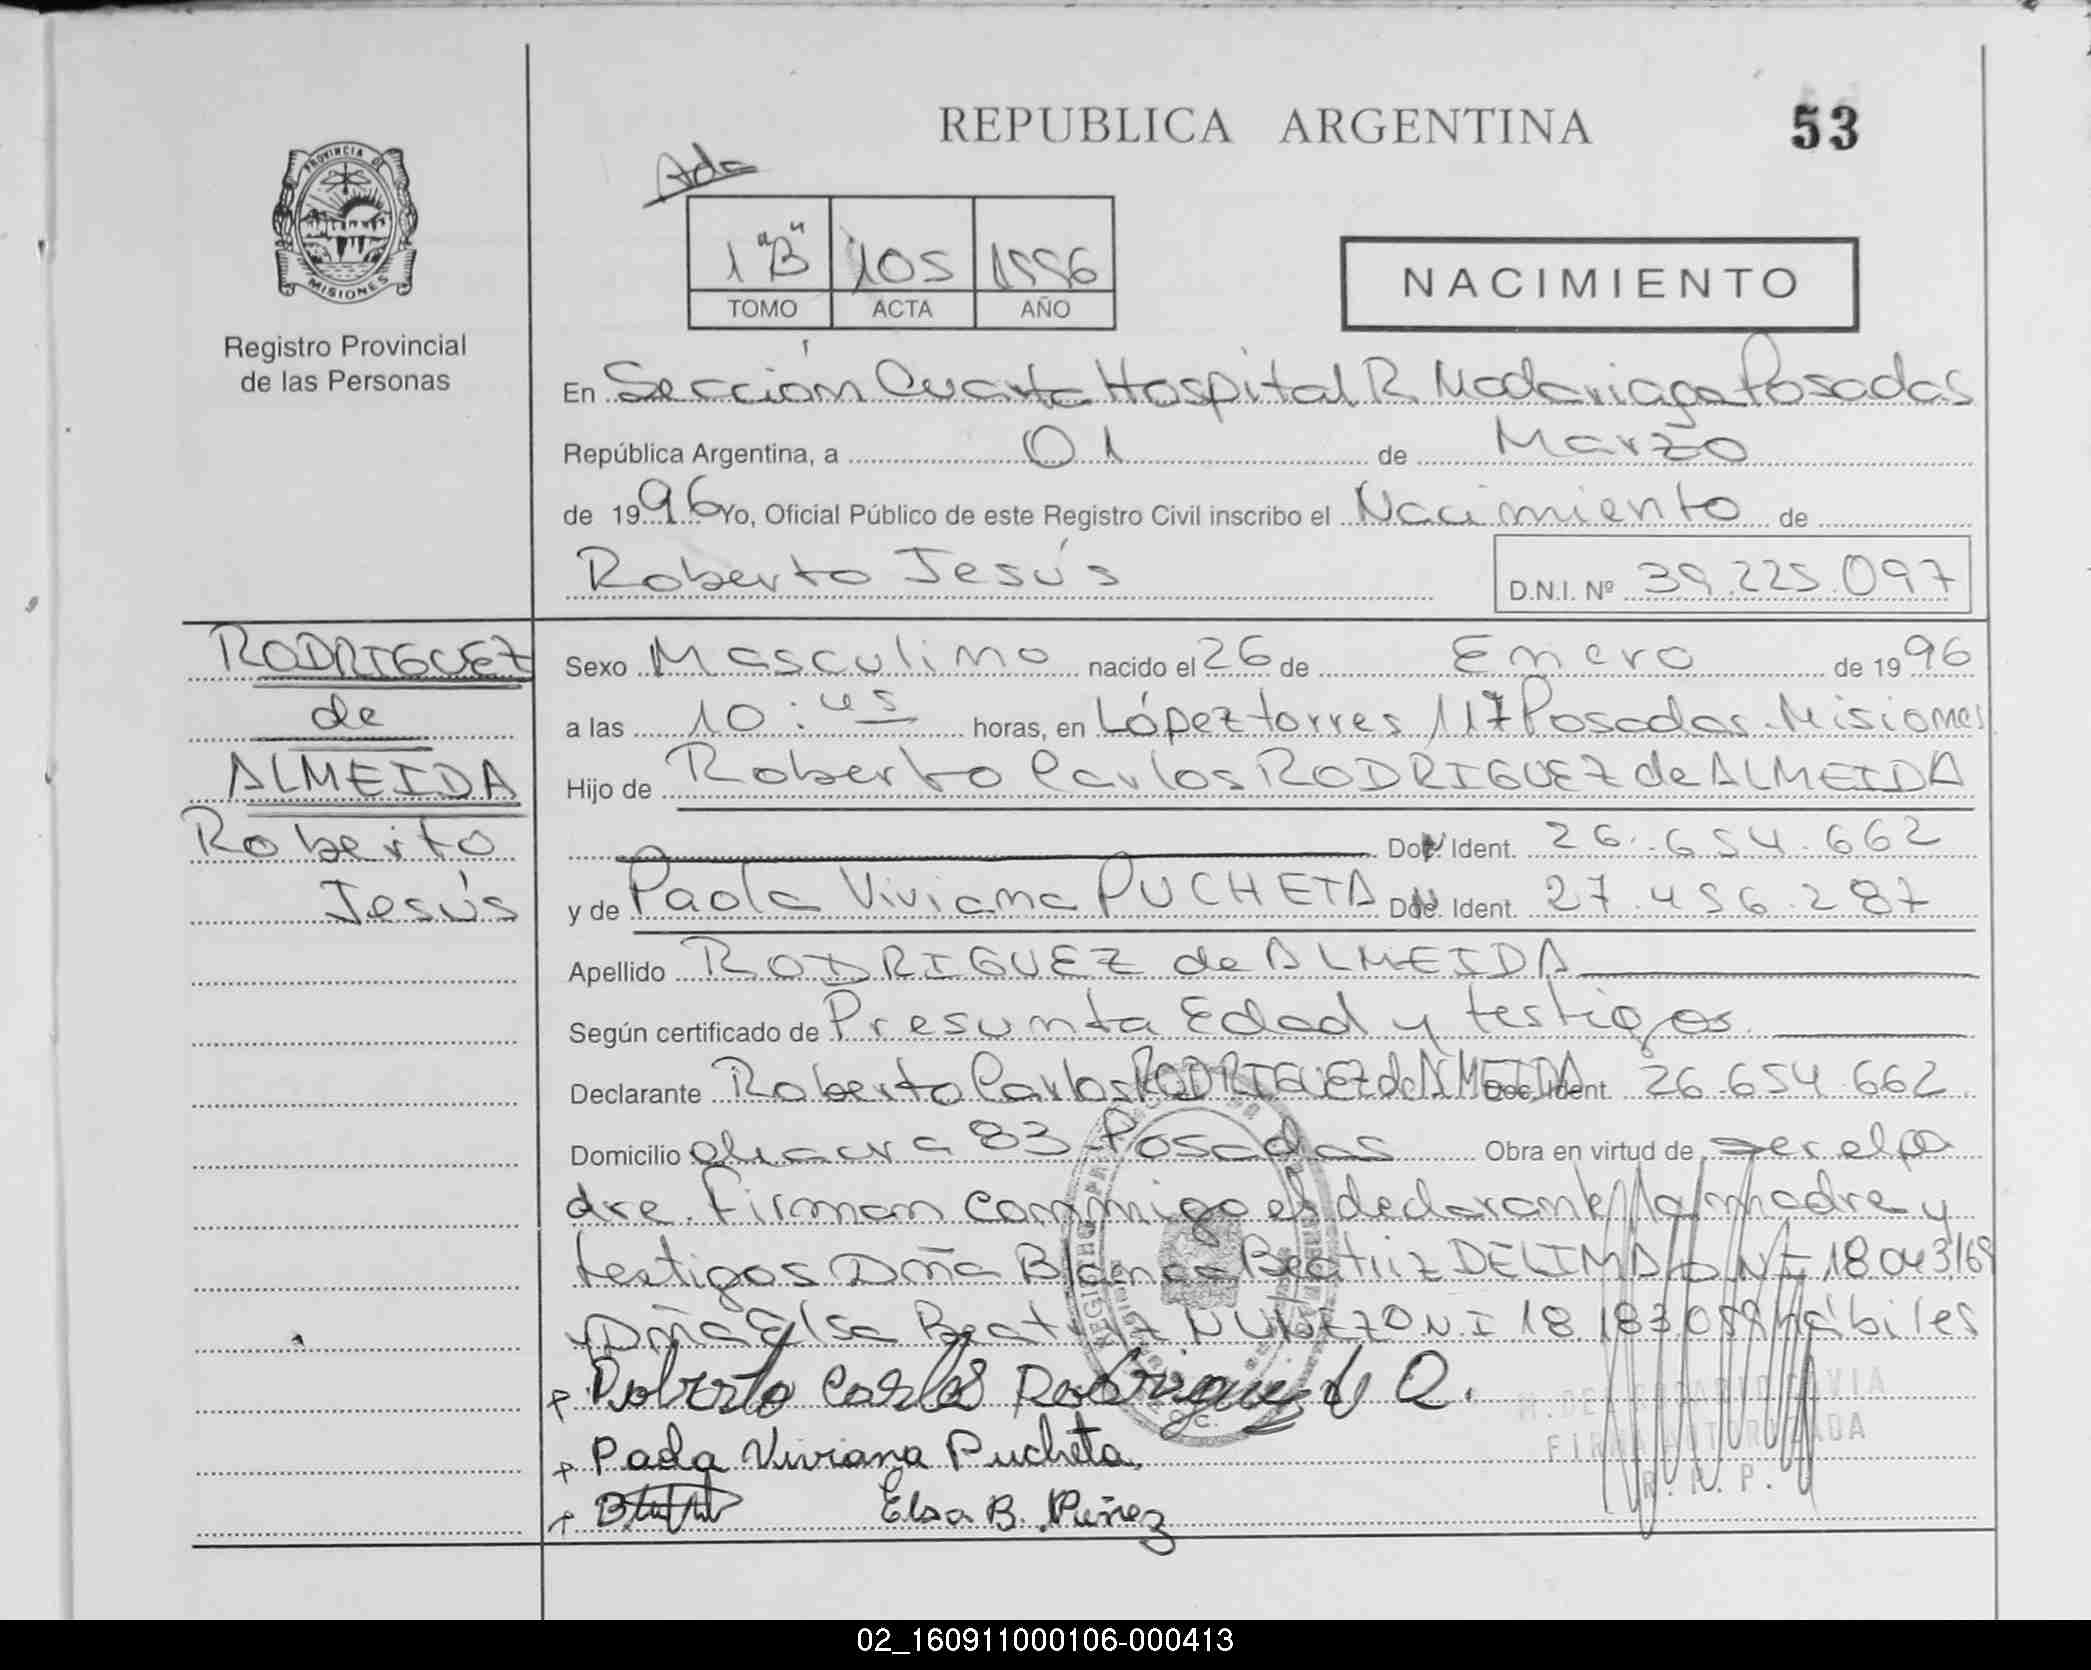 REPUBLICA ARGENTINA
53
PROVINCIA DE
MISIONES
Registro Provincial
de las Personas
1 "B" 105 1996
TOMO ACTA AÑO
NACIMIENTO
En Sección Cuarta Hospital R. Madariaga Posadas
República Argentina, a 01 de Marzo
de 1996 Yo, Oficial Público de este Registro Civil inscribo el Nacimiento de
Roberto Jesús
D.N.I. Nº 39.225.097
RODRIGUEZ
de
ALMEIDA
Roberto
Jesús
Sexo Masculino nacido el 26 de Enero de 1996
a las 10:45 horas, en López torres 117 Posadas. Misiones
Hijo de Roberto Carlos RODRIGUEZ de ALMEIDA
Ident. 26.654.662
y de Paola Viviana PUCHETA Ident. 27.456.287
Apellido RODRIGUEZ de ALMEIDA
Según certificado de Presunta Edad y testigos
Declarante Roberto Carlos RODRIGUEZ de ALMEIDA Doc. Ident. 26.654.662
Domicilio chacra 83 Posadas Obra en virtud de ser el pa
dre. Firman conmigo el declarante la madre y
testigos Dña Blanca Beatriz DELIMA DNI 18043169
y Dña Elsa Beatriz NUÑEZ D.N.I 18 183 059 hábiles
Roberto Carlos Rodriguez d A.
Paola Viviana Pucheta.
Elsa B. Núñez
FIRMA AUTORIZADA
R. P. P.
02_160911000106-000413